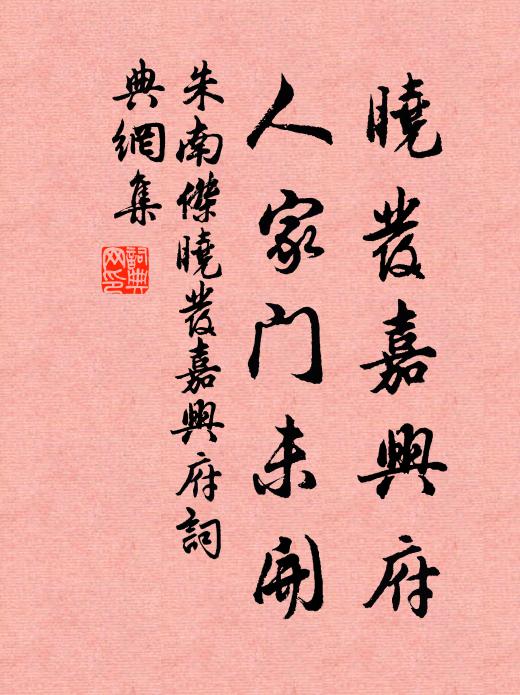 曉發嘉興府
人家門未開
朱南傑曉發嘉興府詞
典網集
詞典
网印